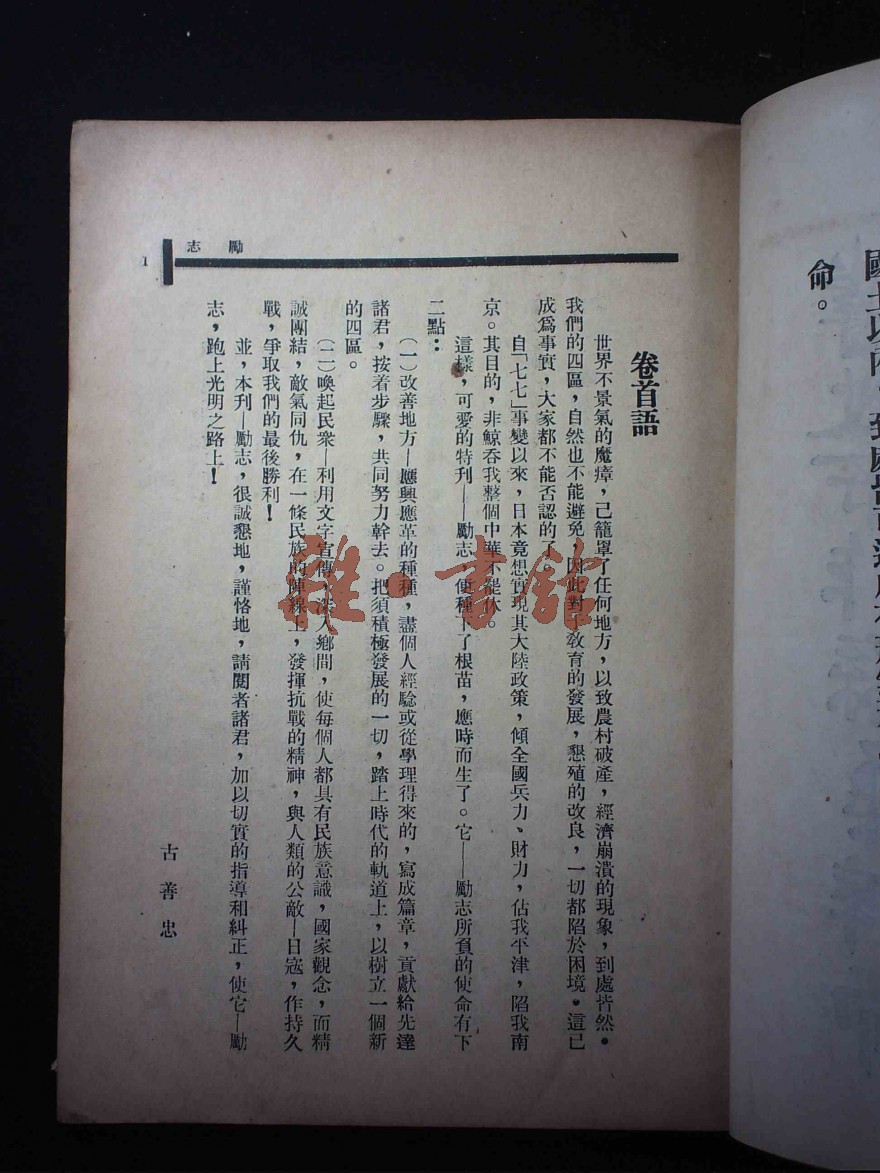 命。
勵志
1
卷首語
世界不景氣的魔瘴，已籠罩了任何地方，以致農村破產，經濟崩潰的現象，到處皆然。
我們的四區，自然也不能避免，因此對于敎育的發展，懇殖的改良，一切都陷於困境。這已
成爲事實，大家都不能否認的了。
自「七七」事變以來，日本竟想實現其大陸政策，傾全國兵力、財力，佔我平津，陷我南
京。其目的，非鯨吞我整個中華不罷休。
這樣，可愛的特刋——勵志，便種下了根苗，應時而生了。它——勵志所負的使命有下
二點：
（一）改善地方—應興應革的種種，盡個人經騐或從學理得來的，寫成篇章，貢獻給先達
諸君，按着步驟，共同努力幹去。把須積極發展的一切，踏上時代的軌道上，以樹立一個新
的四區。
（二）喚起民衆—利用文字宣傳，深入鄉間，使每個人都具有民族意識，國家觀念，而精
誠團結，敵氣同仇，在一條民族的陣線上，發揮抗戰的精神，與人類的公敵—日寇，作持久
戰，爭取我們的最後勝利！
並，本刋—勵志，很誠懇地，謹恪地，請閱者諸君，加以切實的指導和糾正，使它—勵
志，跑上光明之路上！
古善忠
雜·書館